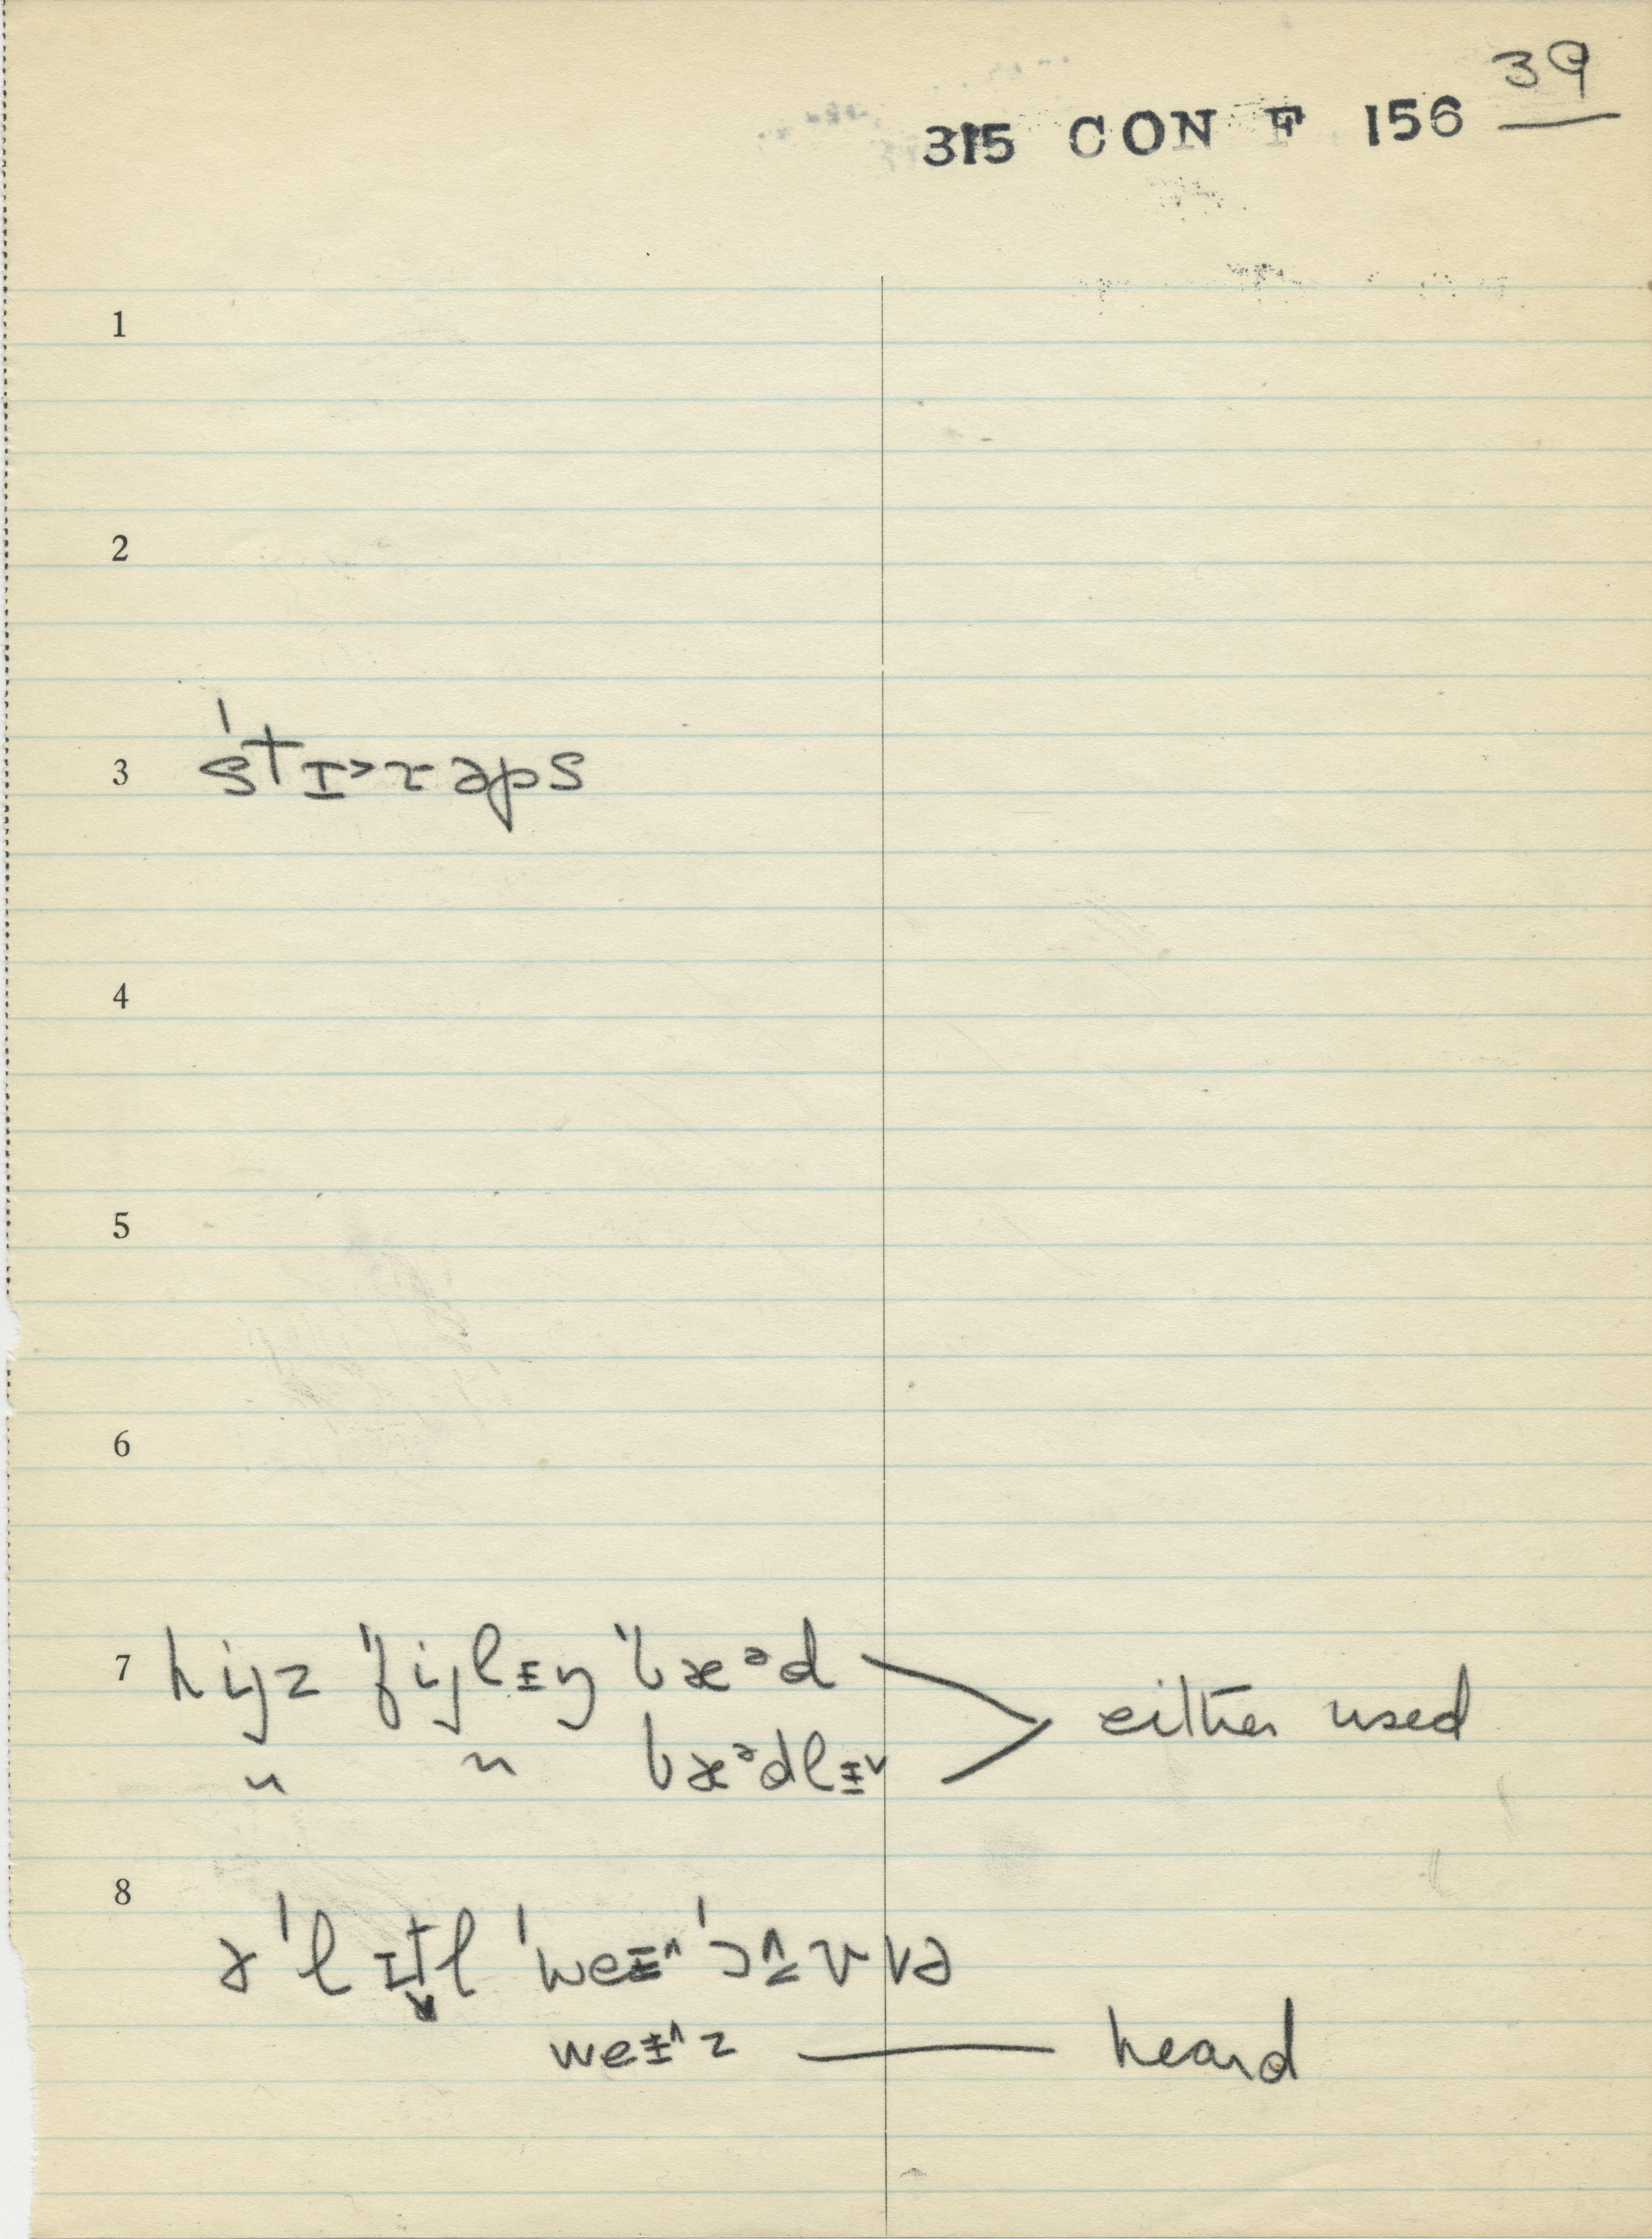 39
315 CON F 156
1
2
3 ˈstɪ˃rəps
4
5
6
7 hijz ˈfijlɨŋ ˈbæᵊd
〃 〃 bæᵊdlɨ˅ either used
8
əˈlɪtl ˈweɨ˄ ˈɔ˄vvə
weɨ˄z — heard